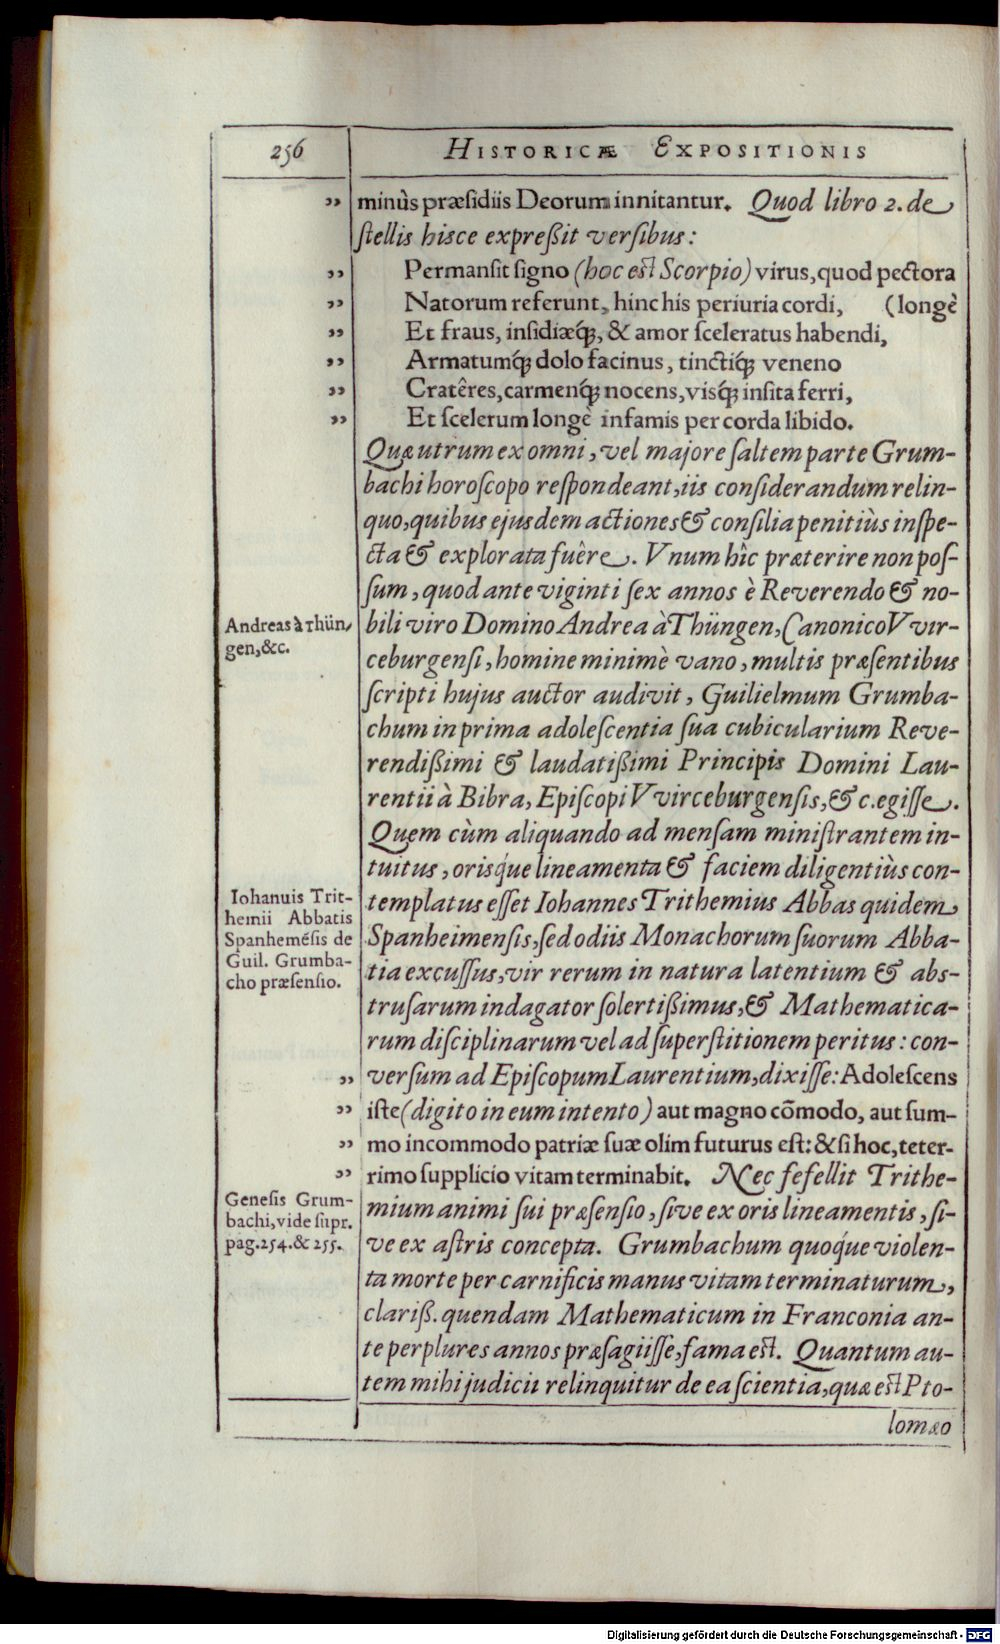 256
HISTORICÆ EXPOSITIONIS
„ minùs præsidiis Deorum innitantur. Quod libro 2. de
stellis hisce expreßit versibus:
„ Permansit signo (hoc est Scorpio) virus, quod pectora
„ Natorum referunt, hinc his periuria cordi, (longè
„ Et fraus, insidiæq́;, & amor sceleratus habendi,
„ Armatumq́; dolo facinus, tinctiq́; veneno
„ Cratêres, carmenq́; nocens, visq́; insita ferri,
„ Et scelerum longè infamis per corda libido.
Quæ utrum ex omni, vel majore saltem parte Grum-
bachi horoscopo respondeant, iis considerandum relin-
quo, quibus ejusdem actiones & consilia penitiùs inspe-
cta & explorata fuêre. Vnum hîc præterire non pos-
sum, quod ante viginti sex annos è Reverendo & no-
Andreas à Thün-
gen, &c.
bili viro Domino Andrea à Thüngen, Canonico VVir-
ceburgensi, homine minimè vano, multis præsentibus
scripti hujus auctor audivit, Guilielmum Grumba-
chum in prima adolescentia sua cubicularium Reve-
rendißimi & laudatißimi Principis Domini Lau-
rentii à Bibra, Episcopi VVirceburgensis, & c. egisse.
Quem cùm aliquando ad mensam ministrantem in-
tuitus, orisq́ue lineamenta & faciem diligentiùs con-
Iohanuis Trit-
hemii Abbatis
Spanhemẽsis de
Guil. Grumba-
cho præsensio.
templatus esset Iohannes Trithemius Abbas quidem
Spanheimensis, sed odiis Monachorum suorum Abba-
tia excussus, vir rerum in natura latentium & abs-
trusarum indagator solertißimus, & Mathematica-
rum disciplinarum vel ad superstitionem peritus: con-
„ versum ad Episcopum Laurentium, dixisse: Adolescens
„ iste (digito in eum intento) aut magno cõmodo, aut sum-
„ mo incommodo patriæ suæ olim futurus est: & si hoc, teter-
„ rimo supplicio vitam terminabit. Nec fefellit Trithe-
Genesis Grum-
bachi, vide supr.
pag. 254. & 255.
mium animi sui præsensio, sive ex oris lineamentis, si-
ve ex astris concepta. Grumbachum quoq́ue violen-
ta morte per carnificis manus vitam terminaturum,
clariß. quendam Mathematicum in Franconia an-
te perplures annos præsagiisse, fama est. Quantum au-
tem mihi judicii relinquitur de ea scientia, quæ est Pto-
lomæo
Digitalisierung gefördert durch die Deutsche Forschungsgemeinschaft - DFG